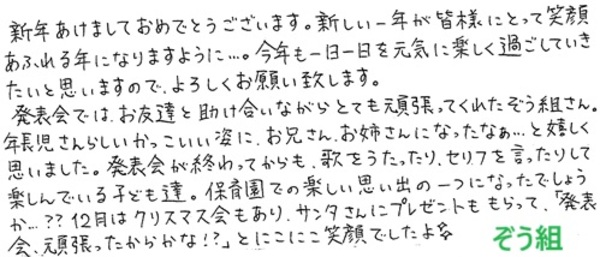 新年あけましておめでとうございます。新しい一年が皆様にとって笑顔
あふれる年になりますように…。今年も一日一日を元気に楽しく過ごしていき
たいと思いますので、よろしくお願い致します。
発表会では、お友達と助け合いながらとても頑張ってくれたぞう組さん。
年長児さんらしいかっこいい姿に、お兄さん、お姉さんになったなぁ…と嬉しく
思いました。発表会が終わってからも、歌をうたったり、セリフを言ったりして
楽しんでいる子ども達。保育園での楽しい思い出の一つになったでしょう
か…??12月はクリスマス会もあり、サンタさんにプレゼントももらって、「発表
会、頑張ったからかな!?」とにこにこ笑顔でしたよ☆
ぞう組